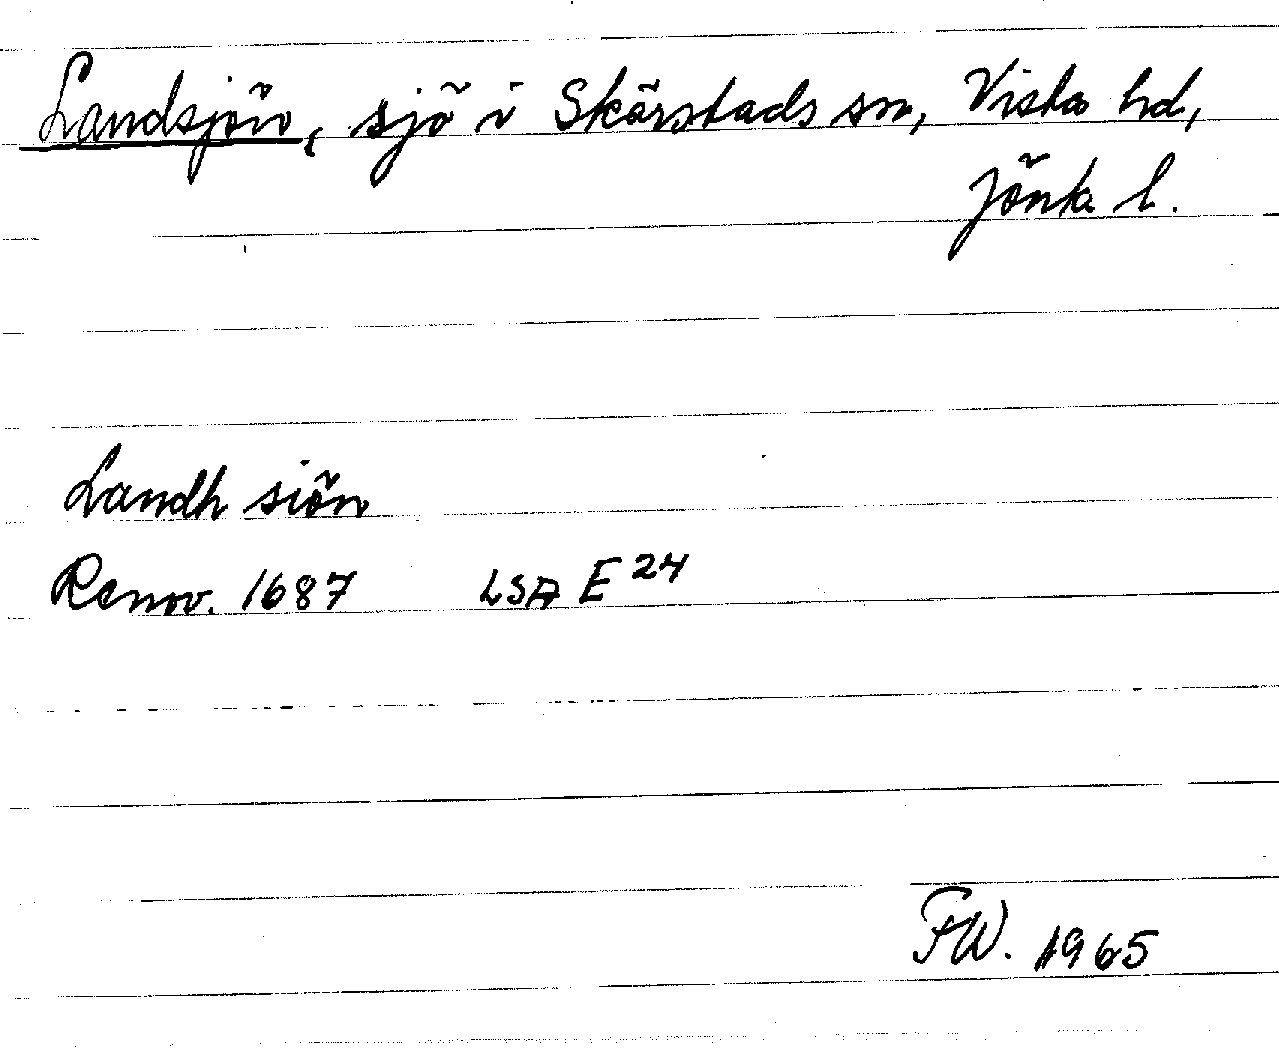 Landsjön, sjö i Skärstads sn, Vista hd,
Jönk. l.
Landh siön
Renov. 1687 LSA E24
FW. 1965